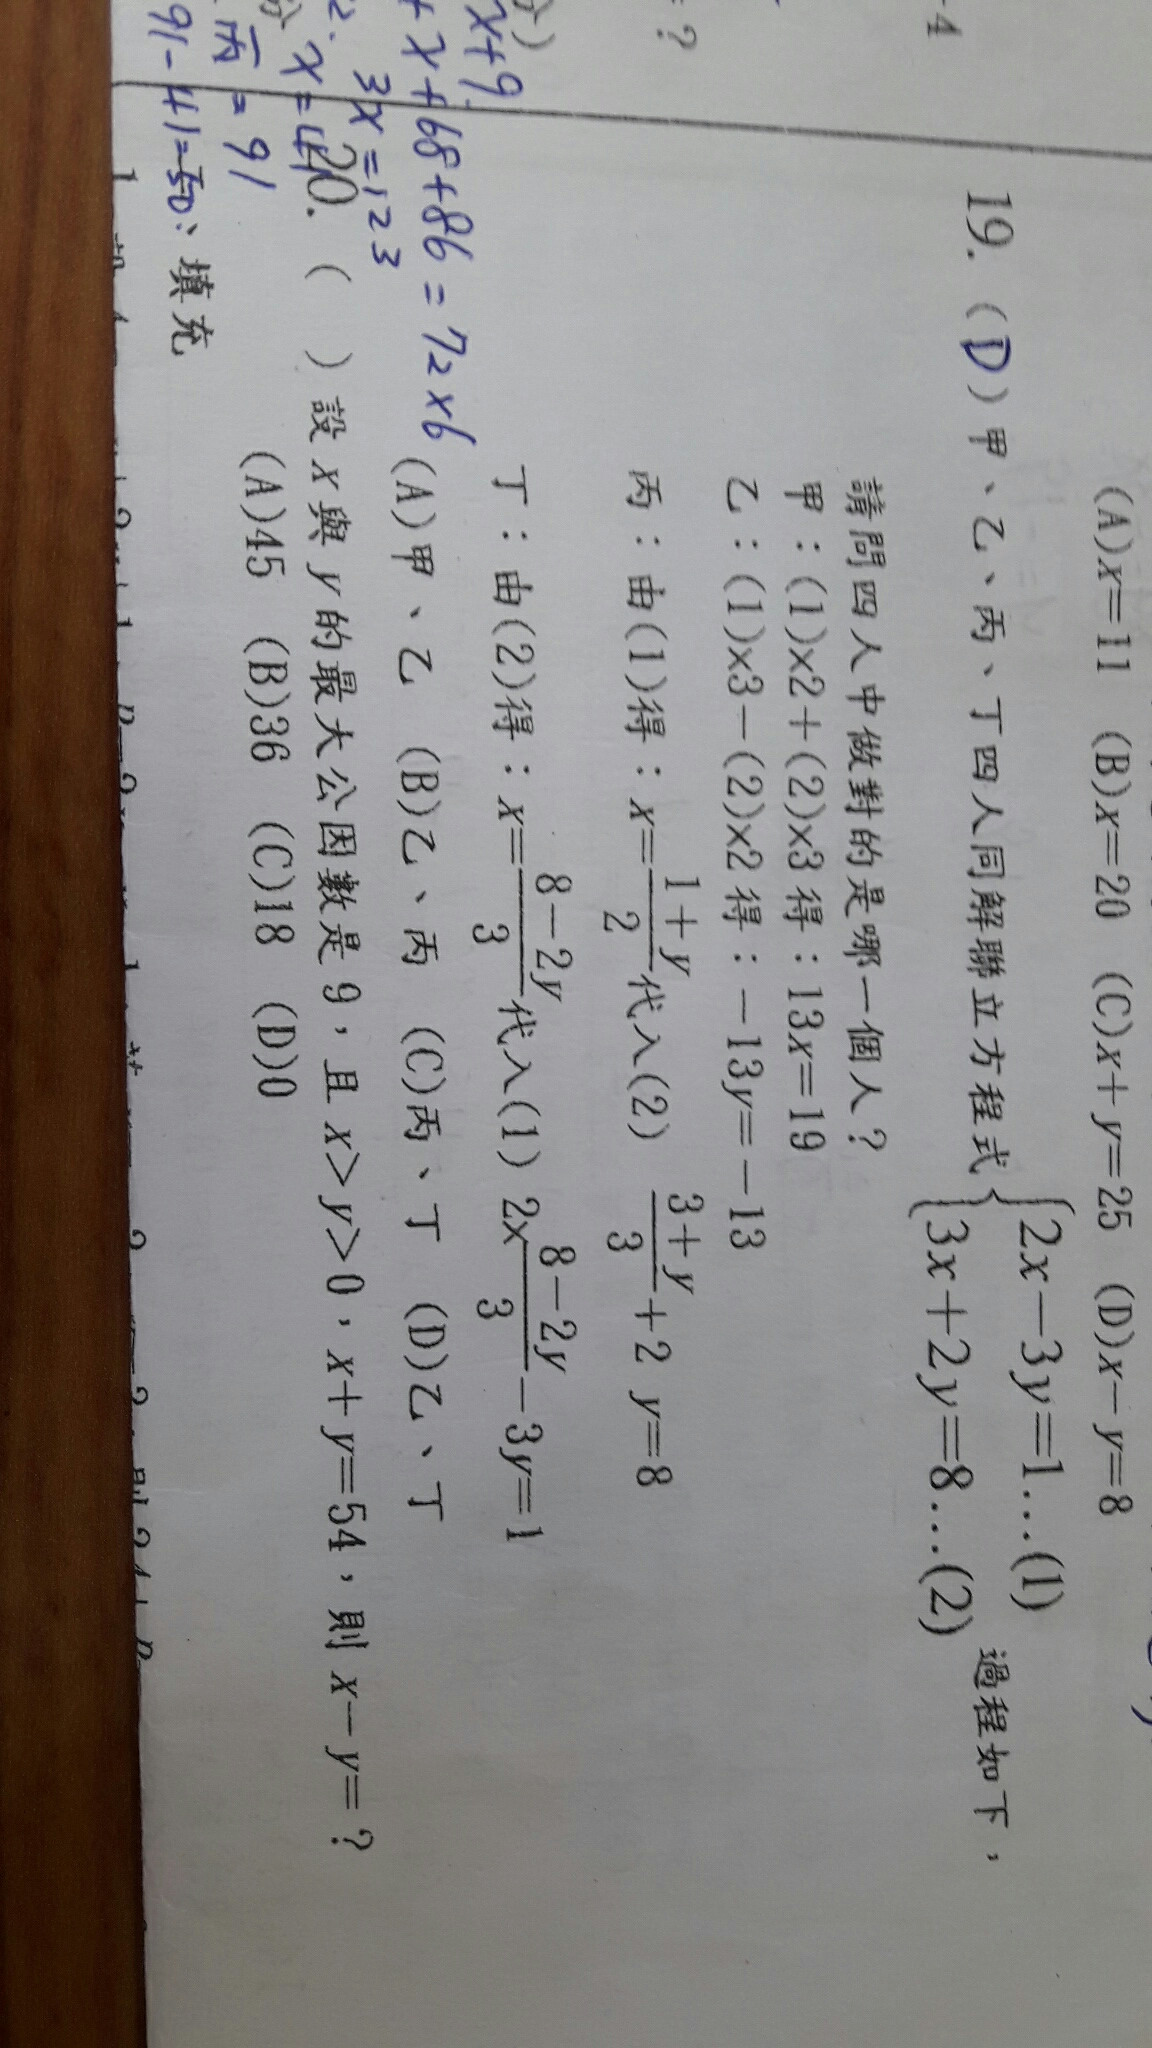 -4
= ?
(A)x=11 (B)x=20 (C)x+y=25 (D)x-y=8
19. (D) 甲、乙、丙、丁四人同解聯立方程式 {2x-3y=1...(1) 過程如下,
3x+2y=8...(2)
請問四人中做對的是哪一個人?
甲:(1)×2+(2)×3得:13x=19
乙:(1)×3-(2)×2得:-13y=-13
丙:由(1)得:x=(1+y)/2代入(2) (3+y)/3+2 y=8
丁:由(2)得:x=(8-2y)/3代入(1) 2×(8-2y)/3-3y=1
(A)甲、乙 (B)乙、丙 (C)丙、丁 (D)乙、丁
20. ( ) 設x與y的最大公因數是9,且x>y>0,x+y=54,則x-y=?
(A)45 (B)36 (C)18 (D)0
填充
x+9
+x+68+86=72×6
3x=123
x=41
丙=91
91-41=50